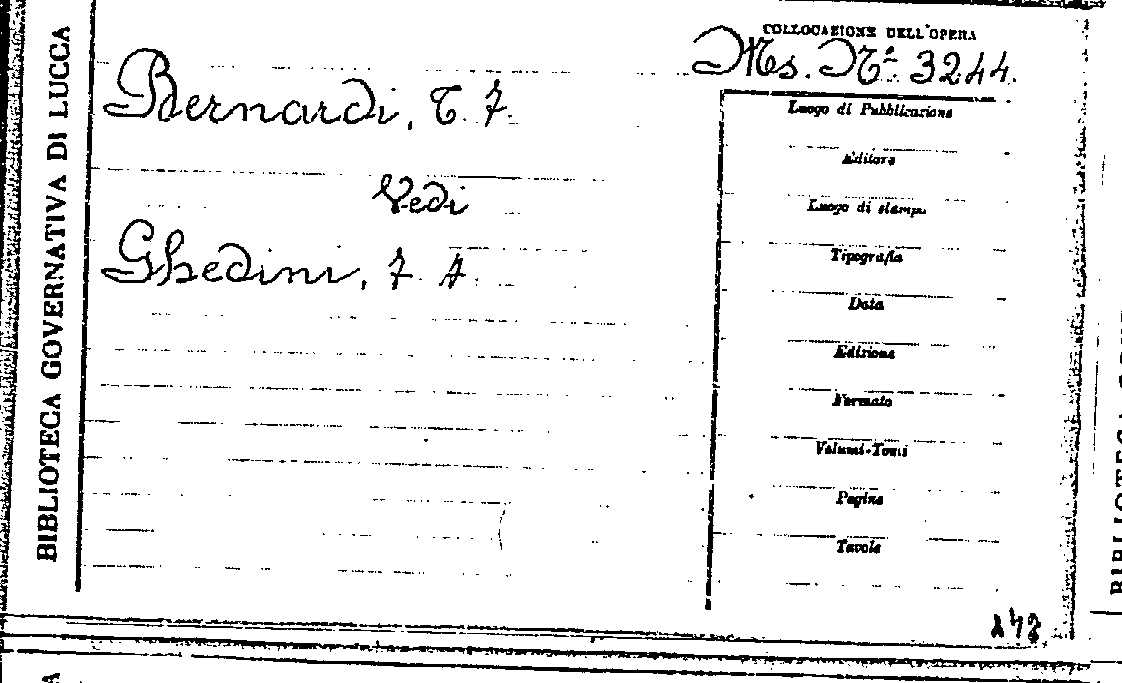 BIBLIOTECA GOVERNATIVA DI LUCCA
COLLOCAZIONE DELL'OPERA
Ms. N.º 3244.
Bernardi, T. F.
Vedi
Ghedini, F. A.
Luogo di Pubblicazione
Editore
Luogo di stampa
Tipografia
Data
Edizione
Formato
Volumi-Tomi
Pagine
Tavole